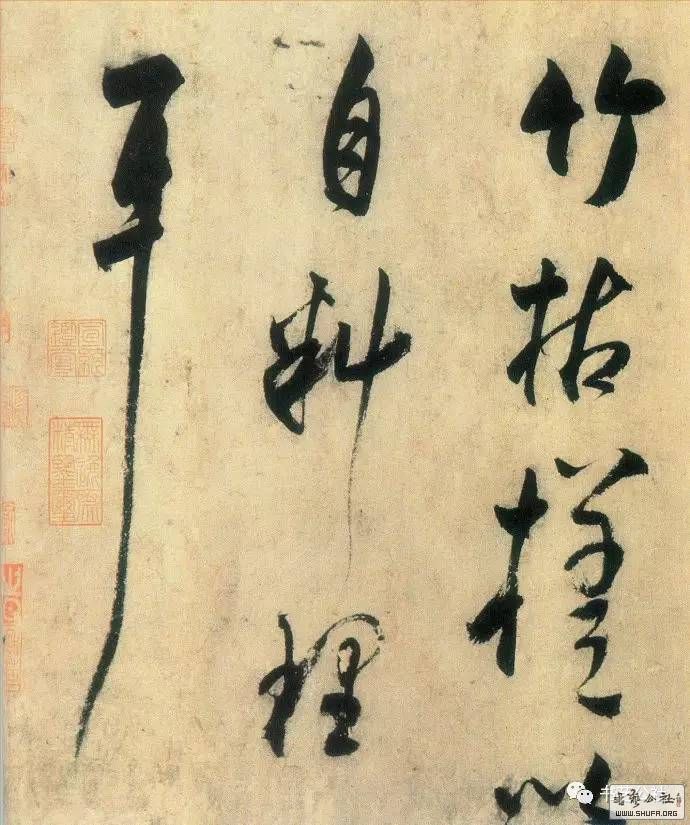 竹枯槎以
自料理
耳
书艺公社
WWW.SHUFA.ORG